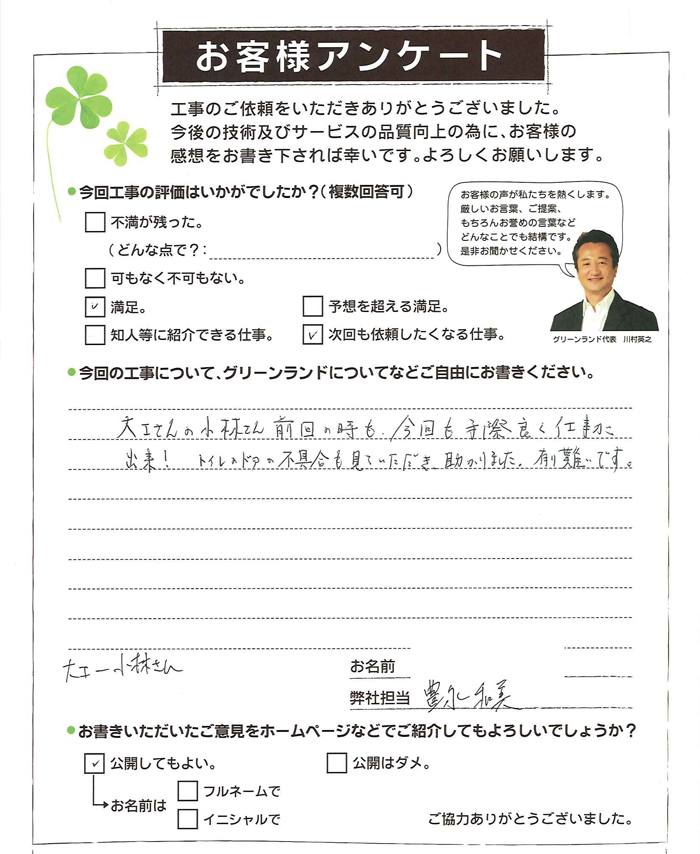 お客様アンケート
工事のご依頼をいただきありがとうございました。
今後の技術及びサービスの品質向上の為に、お客様の
感想をお書き下されば幸いです。よろしくお願いします。
●今回工事の評価はいかがでしたか？(複数回答可)
お客様の声が私たちを熱くします。
厳しいお言葉、ご提案、
もちろんお誉めの言葉など
どんなことでも結構です。
是非お聞かせください。
不満が残った。
(どんな点で？: )
可もなく不可もない。
✓ 満足。 予想を超える満足。
知人等に紹介できる仕事。 ✓ 次回も依頼したくなる仕事。
グリーンランド代表 川村英之
●今回の工事について、グリーンランドについてなどご自由にお書きください。
大工さんの小林さん前回の時も、今回も手際良く仕事に
出来！ トイレのドアの不具合も見ていただき、助かりました。有り難いです。
大工ー小林さん
お名前
弊社担当 豊永 和美
●お書きいただいたご意見をホームページなどでご紹介してもよろしいでしょうか？
✓ 公開してもよい。 公開はダメ。
お名前は フルネームで
イニシャルで
ご協力ありがとうございました。